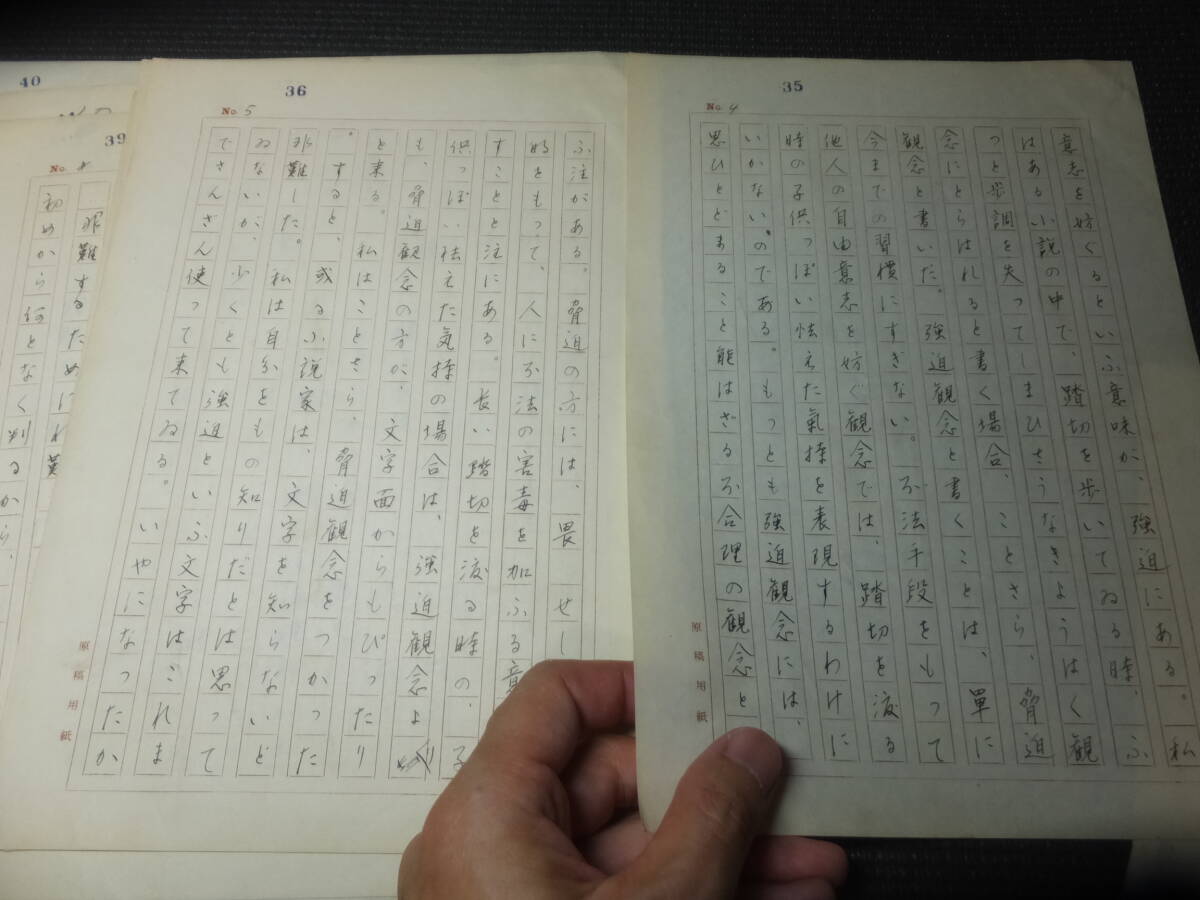 35
No. 4
意志を妨ぐるといふ意味が、強迫にある。私
はある小説の中で、踏切を歩いてゐる時、ふ
つと歩調を失つてしまひさうなきようはく観
念にとらはれると書く場合、ことさら、脅迫
観念と書いた。強迫観念と書くことは、単に
今までの習慣にすぎない。不法手段をもつて
他人の自由意志を妨ぐ観念では、踏切を渡る
時の子供つぽい怯えた氣持を表現するわけに
いかないのである。もつとも強迫観念には、
思ひとどまること能はざる不合理の観念と
36
No. 5
ふ注がある。脅迫の方には、畏せし
めをもつて、人に不法の害毒を加ふる意
すことと注にある。長い踏切を渡る時の、子
供つぽい怯えた気持の場合は、強迫観念よ
も、脅迫観念の方が、文字面からもぴつたり
と来る。私はことさら、脅迫観念をつかつた
。すると、或る小説家は、文字を知らないと
非難した。私は自分をもの知りだとは思つて
ゐないが、少くとも強迫といふ文字はこれま
でさんざん使つて来てゐる。いやになつたか
原稿用紙
原稿用紙
39
No.
非難するために
初めから何となく判るから、
40